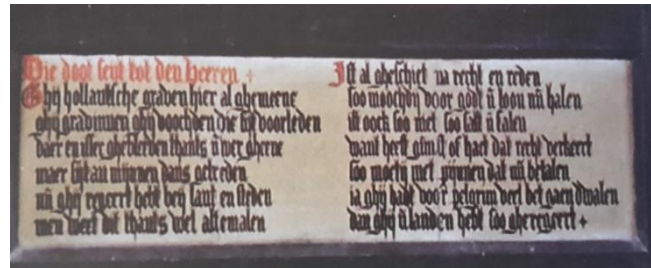 Die doot seyt tot den heeren +
Ghij hollantsche graven hier al ghemeene
ghij gravinnen ghij voochden die sijt voorleden
daer en isser ghebleven thants gheene
maer sijt an mijnnen dans getreden
nu ghij regeert hebt bey lant en steden
men weet dit thants wel altemalen
Ist al gheschiet na recht en reden
soo moochdy voor godt u loon nu halen
ist oock soo niet soo salt u falen
want heeft gunst of haet dat recht verkeert
soo moety met pijnnen dat nu betalen
ia ghij hadt voor pelgrim veel bet gaen dwalen
dan ghij u landen hebt soo gheregeert +